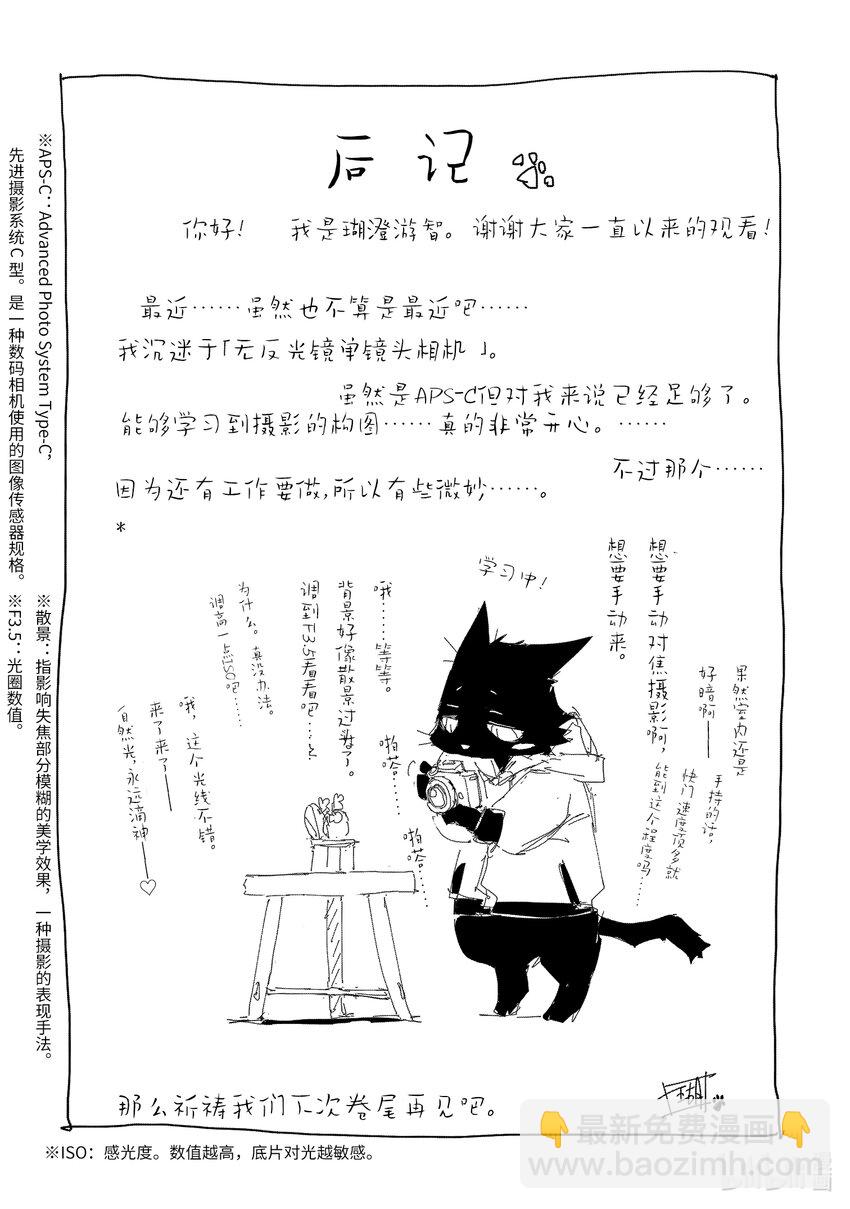 后记
你好！ 我是瑚澄游智。谢谢大家一直以来的观看！
最近……虽然也不算是最近吧……
我沉迷于「无反光镜单镜头相机」。
虽然是APS-C但对我来说已经足够了。
能够学习到摄影的构图……真的非常开心。……
不过那个……
因为还有工作要做，所以有些微妙……。
*
学习中！
果然室内还是
好暗啊——
手持的话，
快门速度顶多就
能到这个程度吗……
想要手动对焦摄影啊，
想要手动来。
啪嗒……
啪嗒……
哦……等等。
背景好像散景过头了。
调到F3.5看看吧……？
为什么。真没办法。
调高一点ISO吧……
哦，这个光线不错。
来了来了——
自然光，永远滴神——♡
那么祈祷我们下次卷尾再见吧。
※APS-C：Advanced Photo System Type-C，
先进摄影系统C型。是一种数码相机使用的图像传感器规格。
※散景：指影响失焦部分模糊的美学效果，一种摄影的表现手法。
※F3.5：光圈数值。
※ISO：感光度。数值越高，底片对光越敏感。
👇最新免费漫画👇
www.baozimh.com